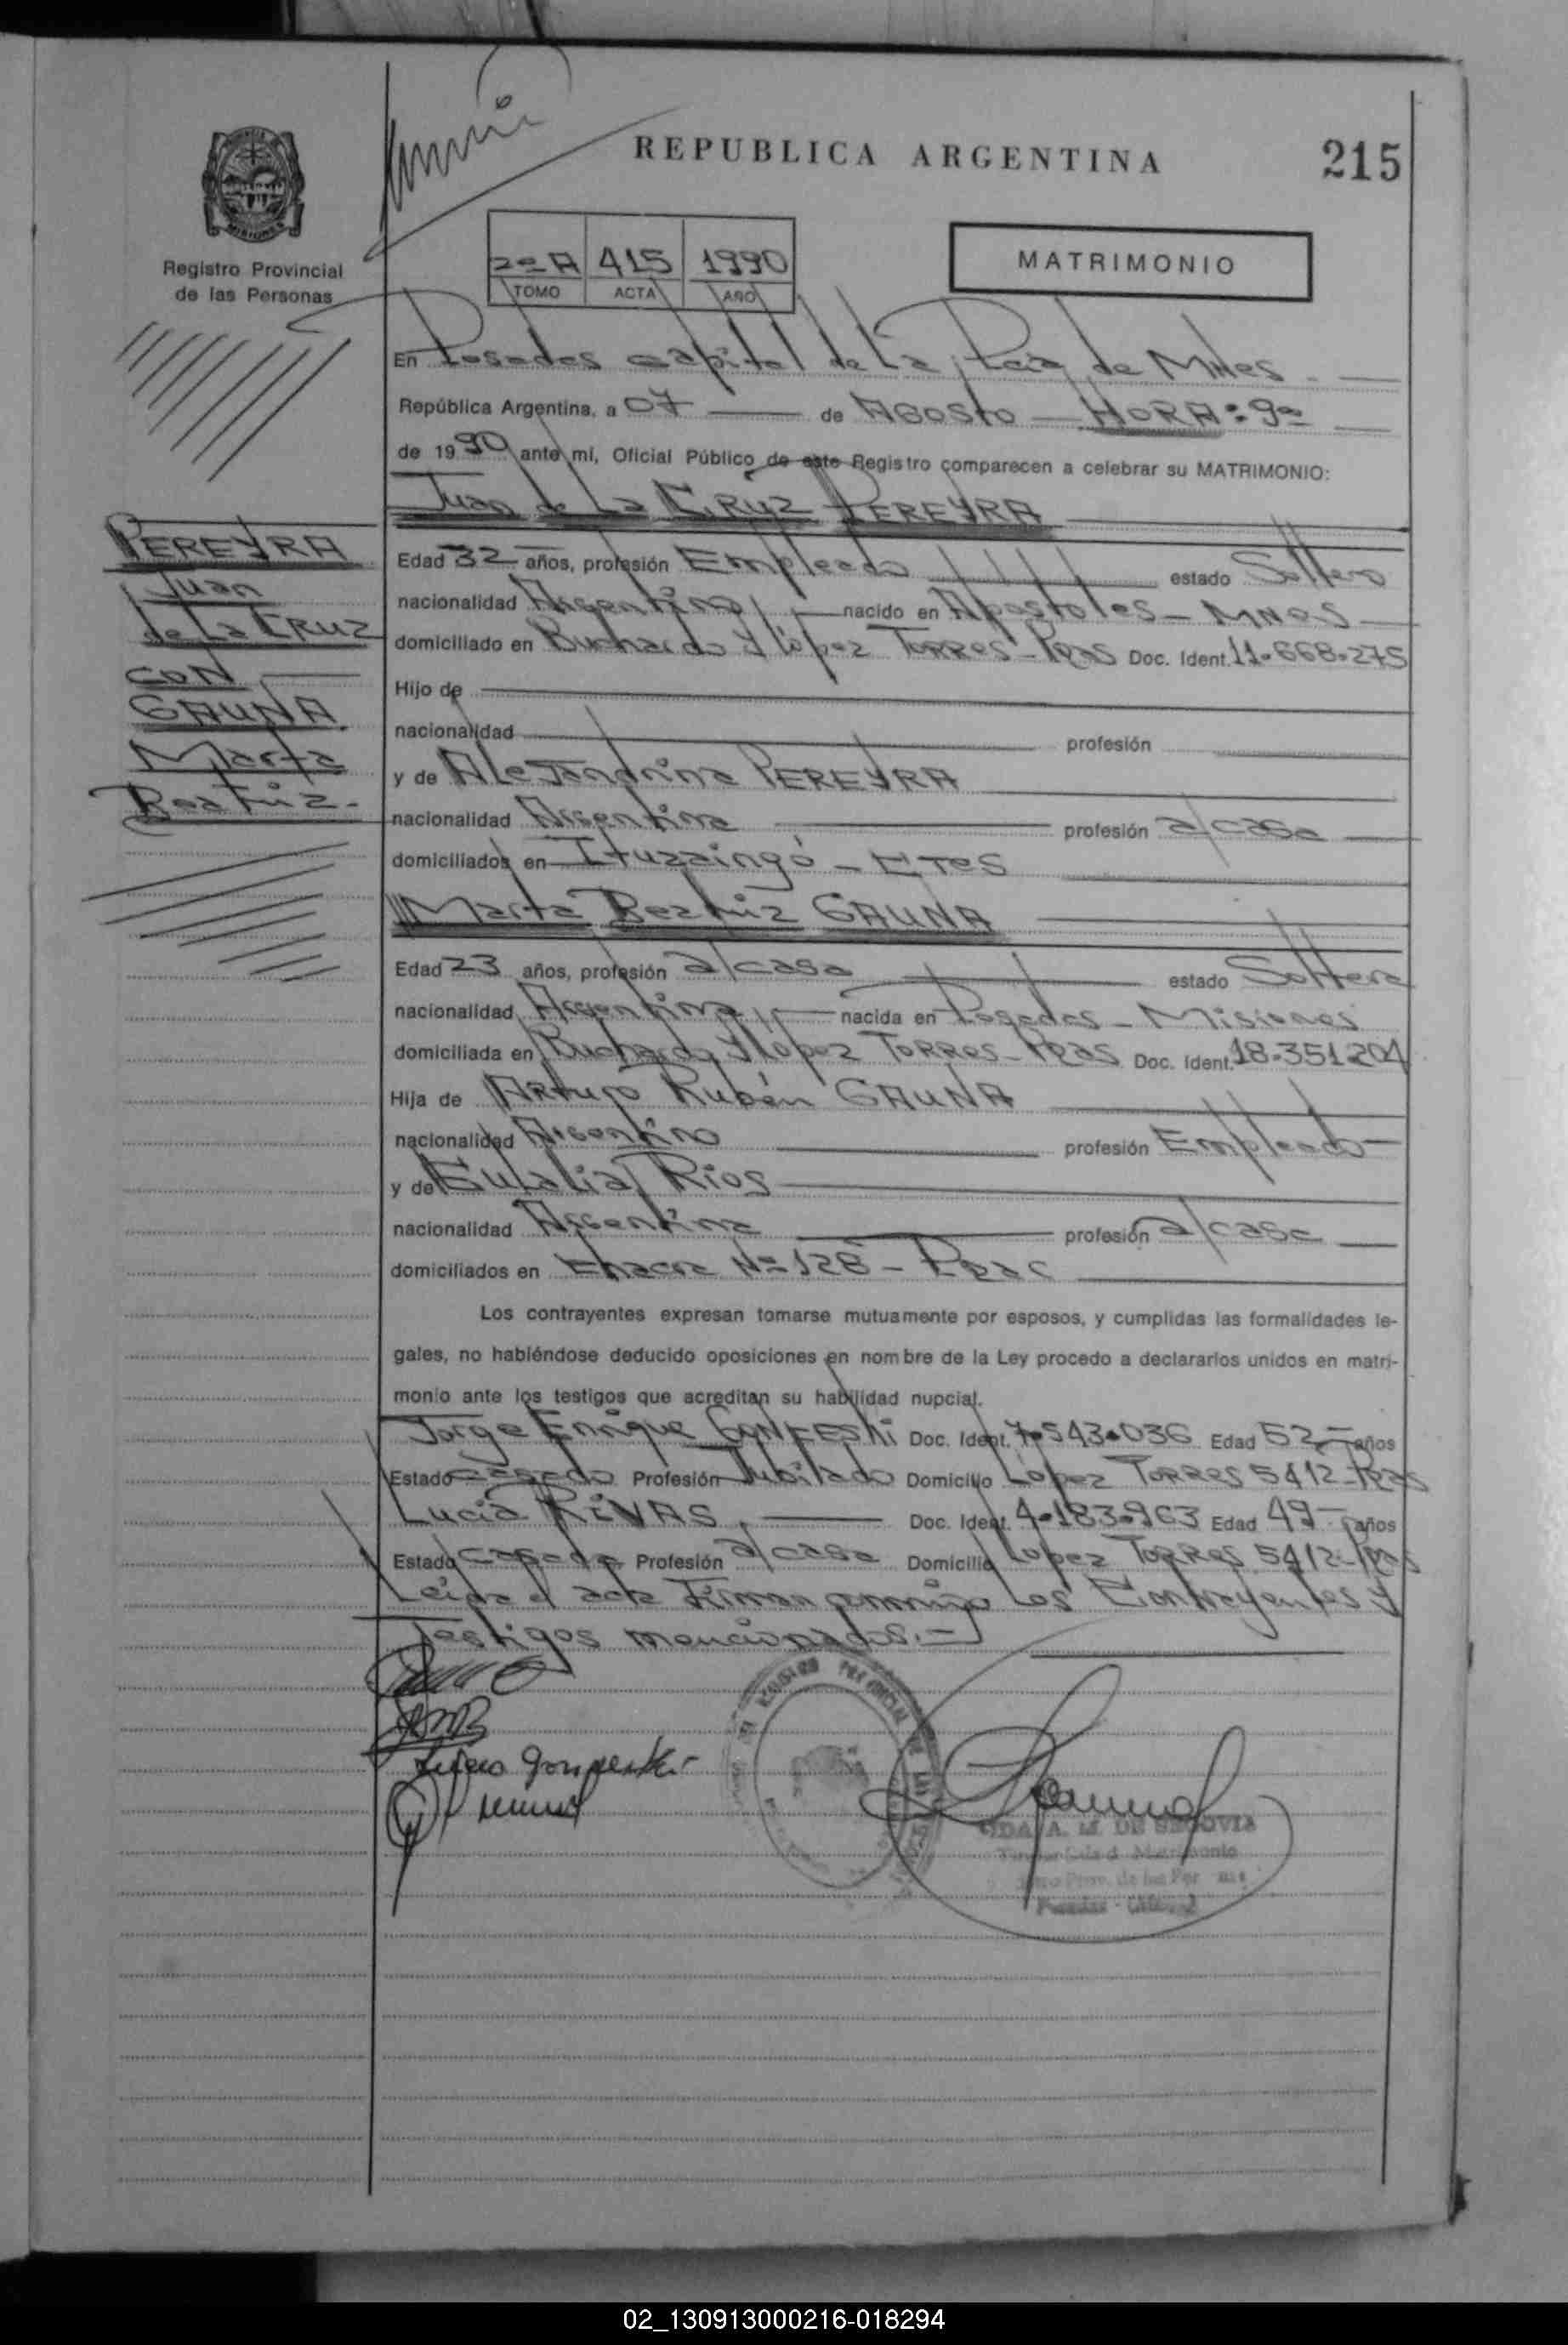 REPUBLICA ARGENTINA
215
MISIONES
Registro Provincial
de las Personas
2º A 415 1990
TOMO ACTA AÑO
MATRIMONIO
En Posadas capital de La Pcia de Mnes
República Argentina, a 07 de Agosto HORA: 9º
de 1990 ante mí, Oficial Público de este Registro comparecen a celebrar su MATRIMONIO:
Juan de La CRUZ PEREYRA
PEREYRA
Juan
de La CRUZ
CON
GAUNA
Marta
Beatriz.-
Edad 32 años, profesión Empleado estado Soltero
nacionalidad Argentino nacido en Apostoles - MNes
domiciliado en Buchardo y López TORRES - Pdas Doc. Ident. 11.668.275
Hijo de
nacionalidad profesión
y de Alejandrina PEREYRA
nacionalidad Argentina profesión a/casa
domiciliados en Ituzaingó - CTES
Marta Beatriz GAUNA
Edad 23 años, profesión a/casa estado Soltera
nacionalidad Argentina nacida en Posadas - Misiones
domiciliada en Buchardo y López TORRES - Pdas Doc. Ident. 18.351204
Hija de Arturo Rubén GAUNA
nacionalidad Argentino profesión Empleado
y de Eulalia Rios
nacionalidad Argentina profesión a/casa
domiciliados en Chacra Nº 128 - Pdas
Los contrayentes expresan tomarse mutuamente por esposos, y cumplidas las formalidades le-
gales, no habiéndose deducido oposiciones en nombre de la Ley procedo a declararlos unidos en matri-
monio ante los testigos que acreditan su habilidad nupcial.
Jorge Enrique Doc. Ident. 7.543.036 Edad 52 años
Estado casado Profesión Jubilado Domicilio López TORRES 5412 - Pdas
Lucia RIVAS Doc. Ident. 4.183.963 Edad 49 años
Estado casada Profesión a/casa Domicilio Lopez TORRES 5412 - Pdas
Leida el acta Firman conmigo Los Contrayentes y
Testigos mencionados.-
VDA. A. M. DE SEGOVIA
02_130913000216-018294